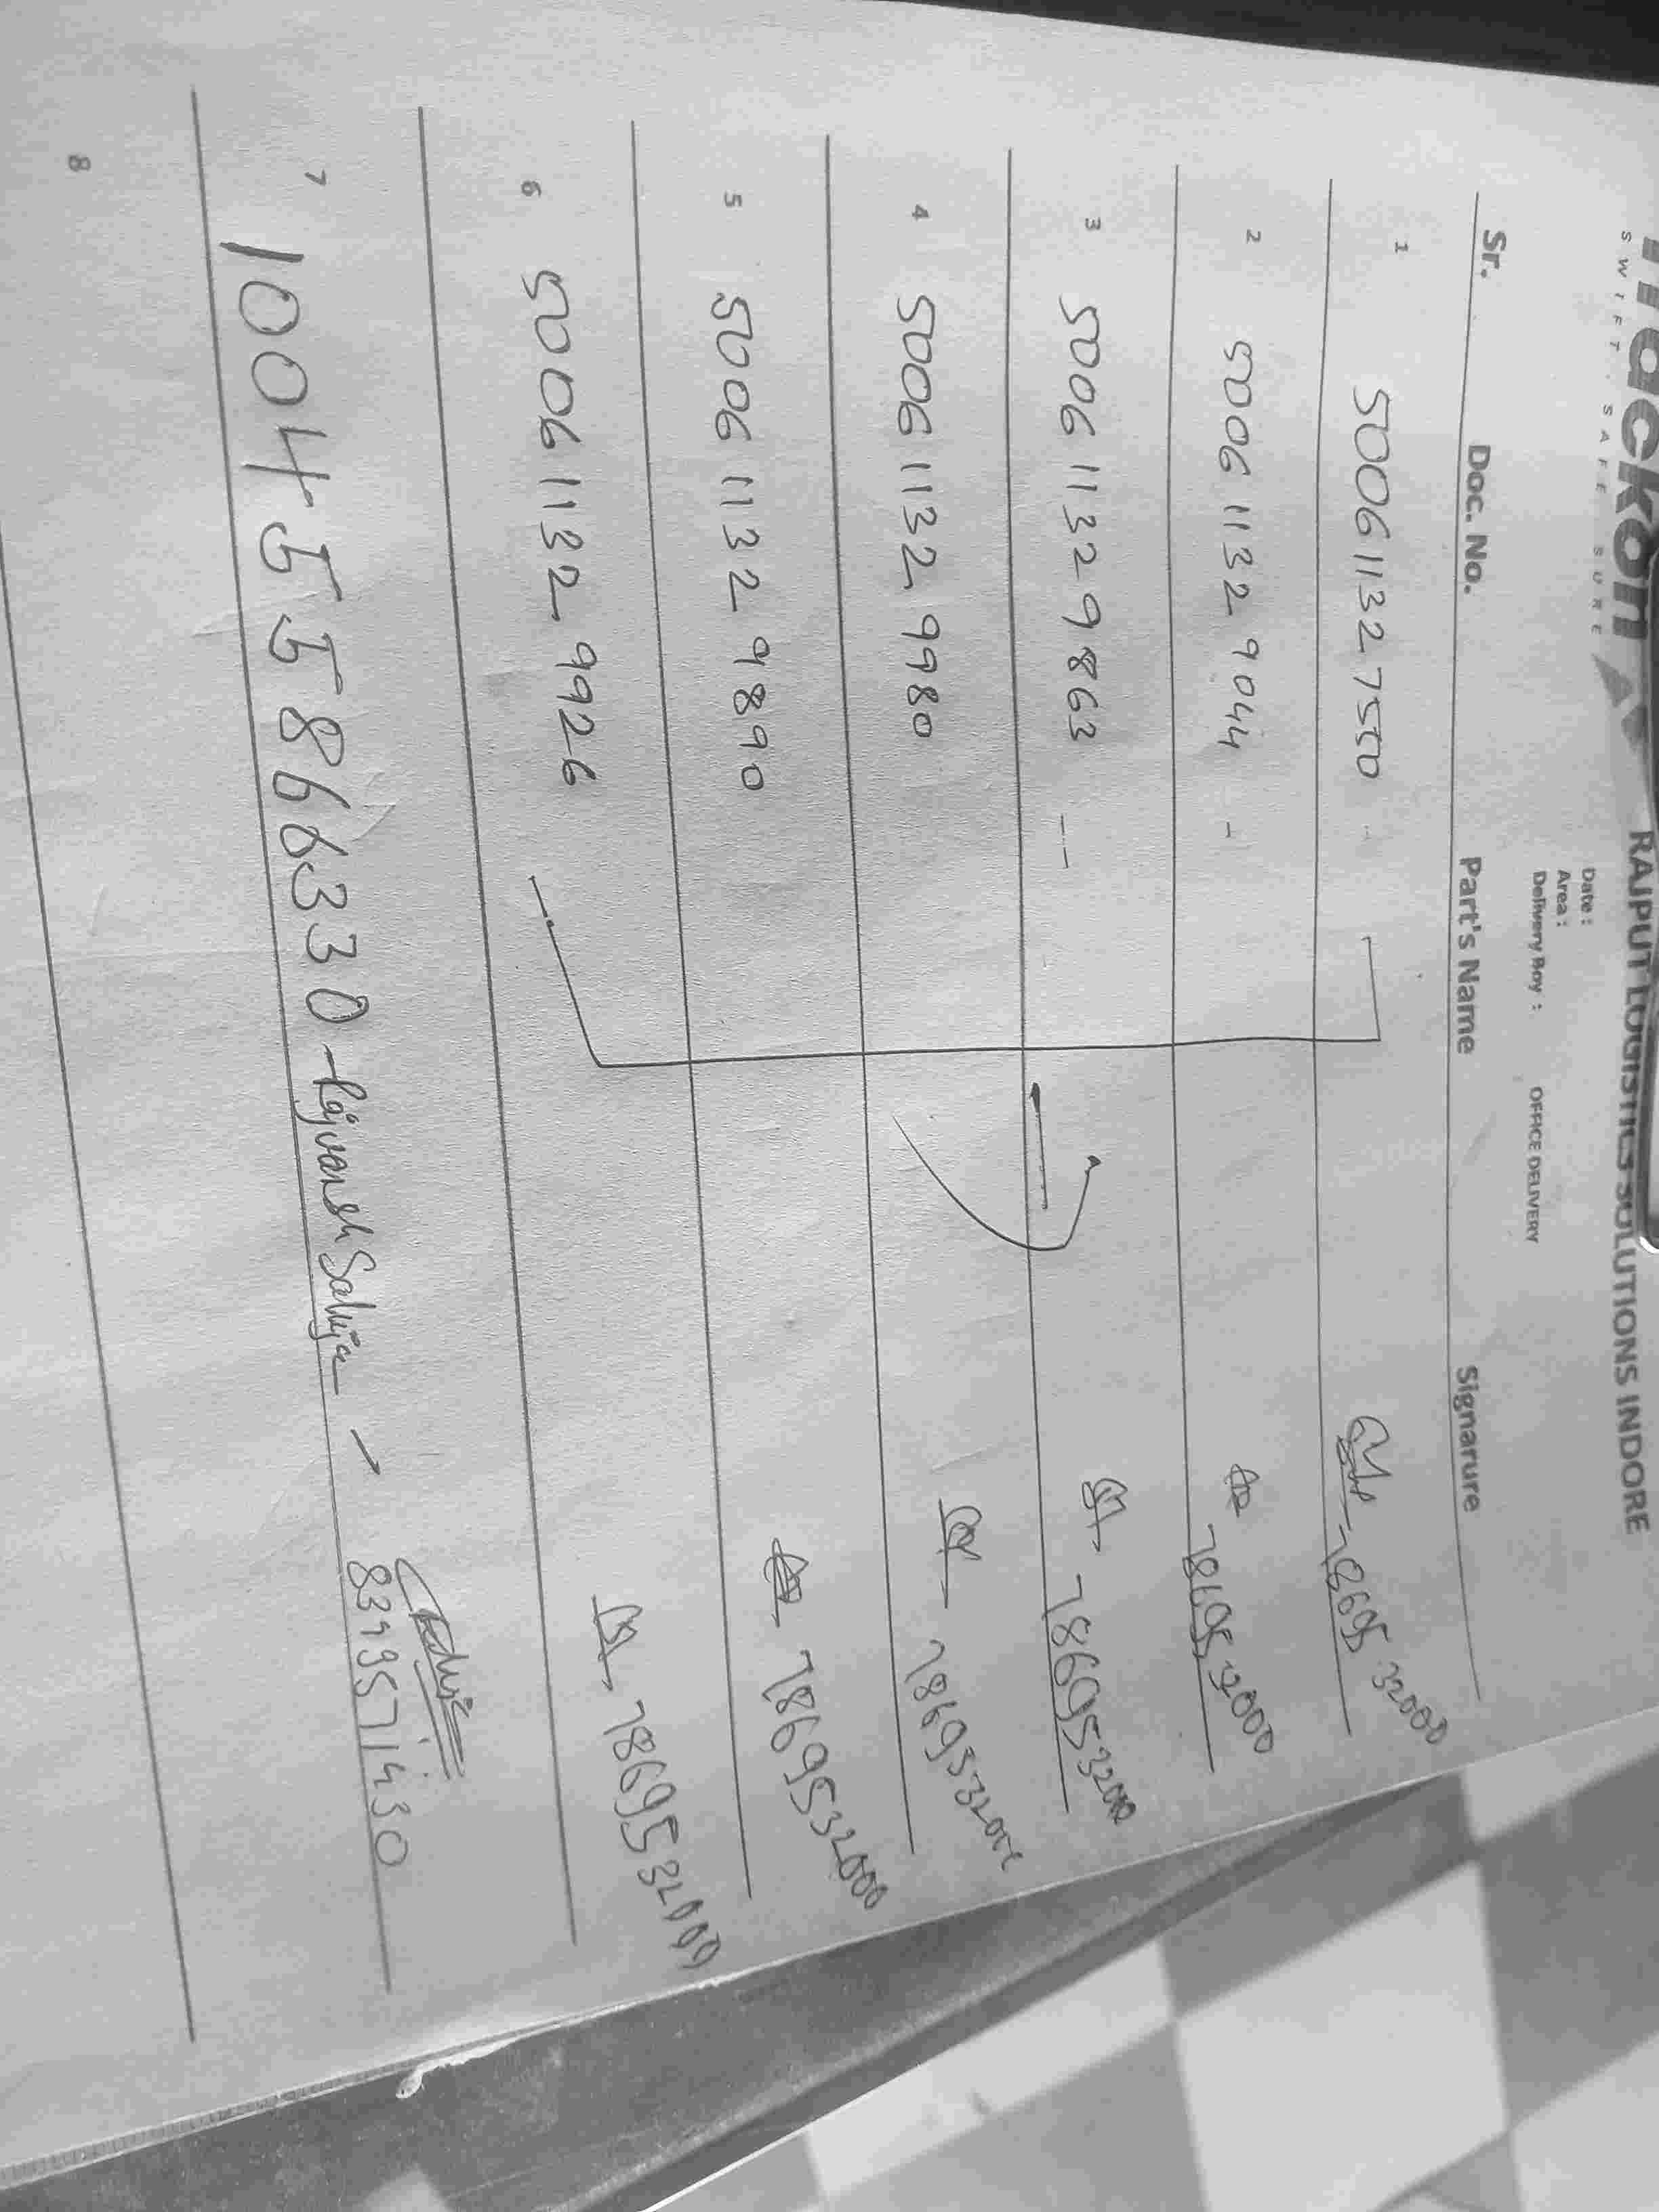 Trackon
SWIFT. SAFE. SURE
RAJPUT LOGISTICS SOLUTIONS INDORE
Date :
Area :
Delivery Boy : OFFICE DELIVERY
Sr. Doc. No. Part's Name Signarure
1 500611327550
2 500611329044 -
3 500611329863 --- 7869532000
4 500611329980
5 500611329890 7869532000
6 500611329926 7869532000
7 100455866330 - Rajvansh Saluja - 8399571430
8